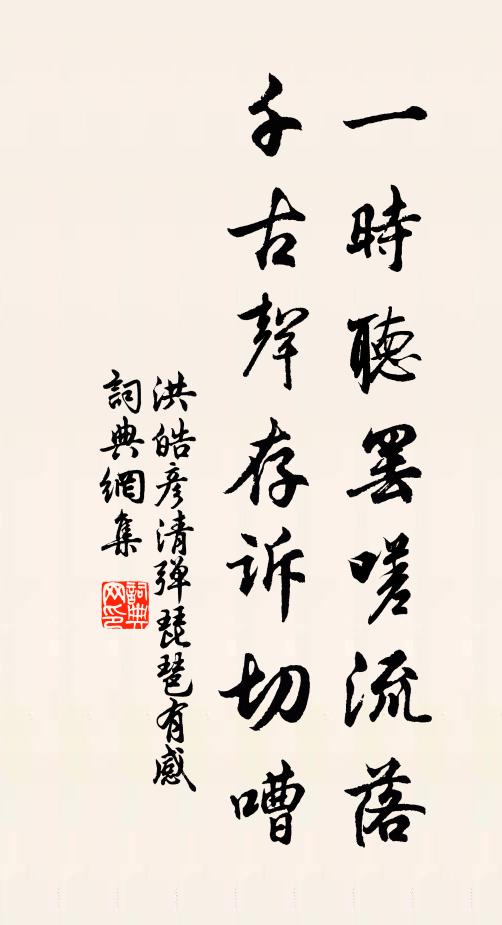 一時聽罷嗟流落
千古聲存訴切嘈
洪皓彥清彈琵琶有感
詞典網集
詞典
网印